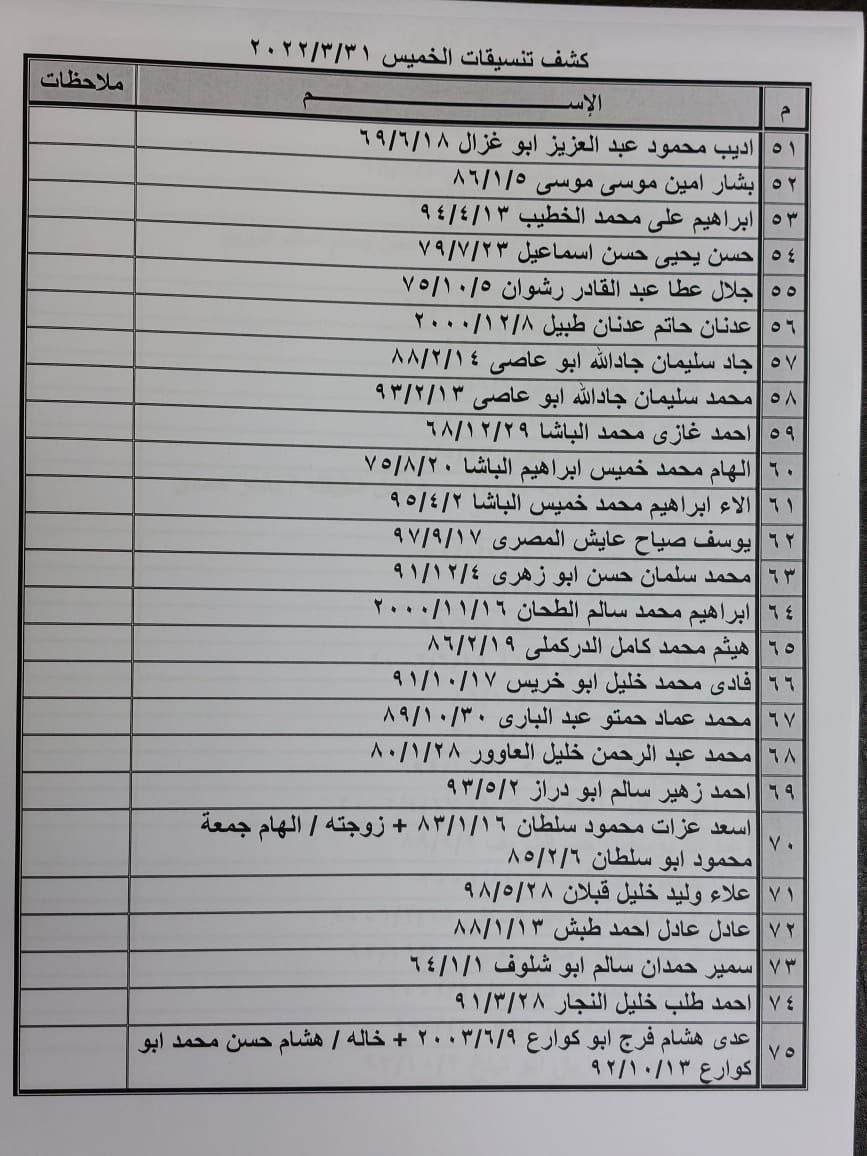 كشف تنسيقات الخميس ٢٠٢٢/٣/٣١
م الإســـــــــم ملاحظات
٥١ اديب محمود عبد العزيز ابو غزال ٦٩/٦/١٨
٥٢ بشار امين موسى موسى ٨٦/١/٥
٥٣ ابراهيم على محمد الخطيب ٩٤/٤/١٣
٥٤ حسن يحيى حسن اسماعيل ٧٩/٧/٢٣
٥٥ جلال عطا عبد القادر رشوان ٧٥/١٠/٥
٥٦ عدنان حاتم عدنان طبيل ٢٠٠٠/١٢/٨
٥٧ جاد سليمان جادالله ابو عاصى ٨٨/٢/١٤
٥٨ محمد سليمان جادالله ابو عاصى ٩٣/٢/١٣
٥٩ احمد غازى محمد الباشا ٦٨/١٢/٢٩
٦٠ الهام محمد خميس ابراهيم الباشا ٧٥/٨/٢٠
٦١ الاء ابراهيم محمد خميس الباشا ٩٥/٤/٢
٦٢ يوسف صياح عايش المصرى ٩٧/٩/١٧
٦٣ محمد سلمان حسن ابو زهرى ٩١/١٢/٤
٦٤ ابراهيم محمد سالم الطحان ٢٠٠٠/١١/١٦
٦٥ هيثم محمد كامل الدركملى ٨٦/٢/١٩
٦٦ فادى محمد خليل ابو خريس ٩١/١٠/١٧
٦٧ محمد عماد حمتو عبد البارى ٨٩/١٠/٣٠
٦٨ محمد عبد الرحمن خليل العاوور ٨٠/١/٢٨
٦٩ احمد زهير سالم ابو دراز ٩٣/٥/٢
٧٠ اسعد عزات محمود سلطان ٨٣/١/١٦ + زوجته / الهام جمعة
محمود ابو سلطان ٨٥/٢/٦
٧١ علاء وليد خليل قبلان ٩٨/٥/٢٨
٧٢ عادل عادل احمد طبش ٨٨/١/١٣
٧٣ سمير حمدان سالم ابو شلوف ٦٤/١/١
٧٤ احمد طلب خليل النجار ٩١/٣/٢٨
٧٥ عدى هشام فرج ابو كوارع ٢٠٠٣/٦/٩ + خاله / هشام حسن محمد ابو
كوارع ٩٢/١٠/١٣